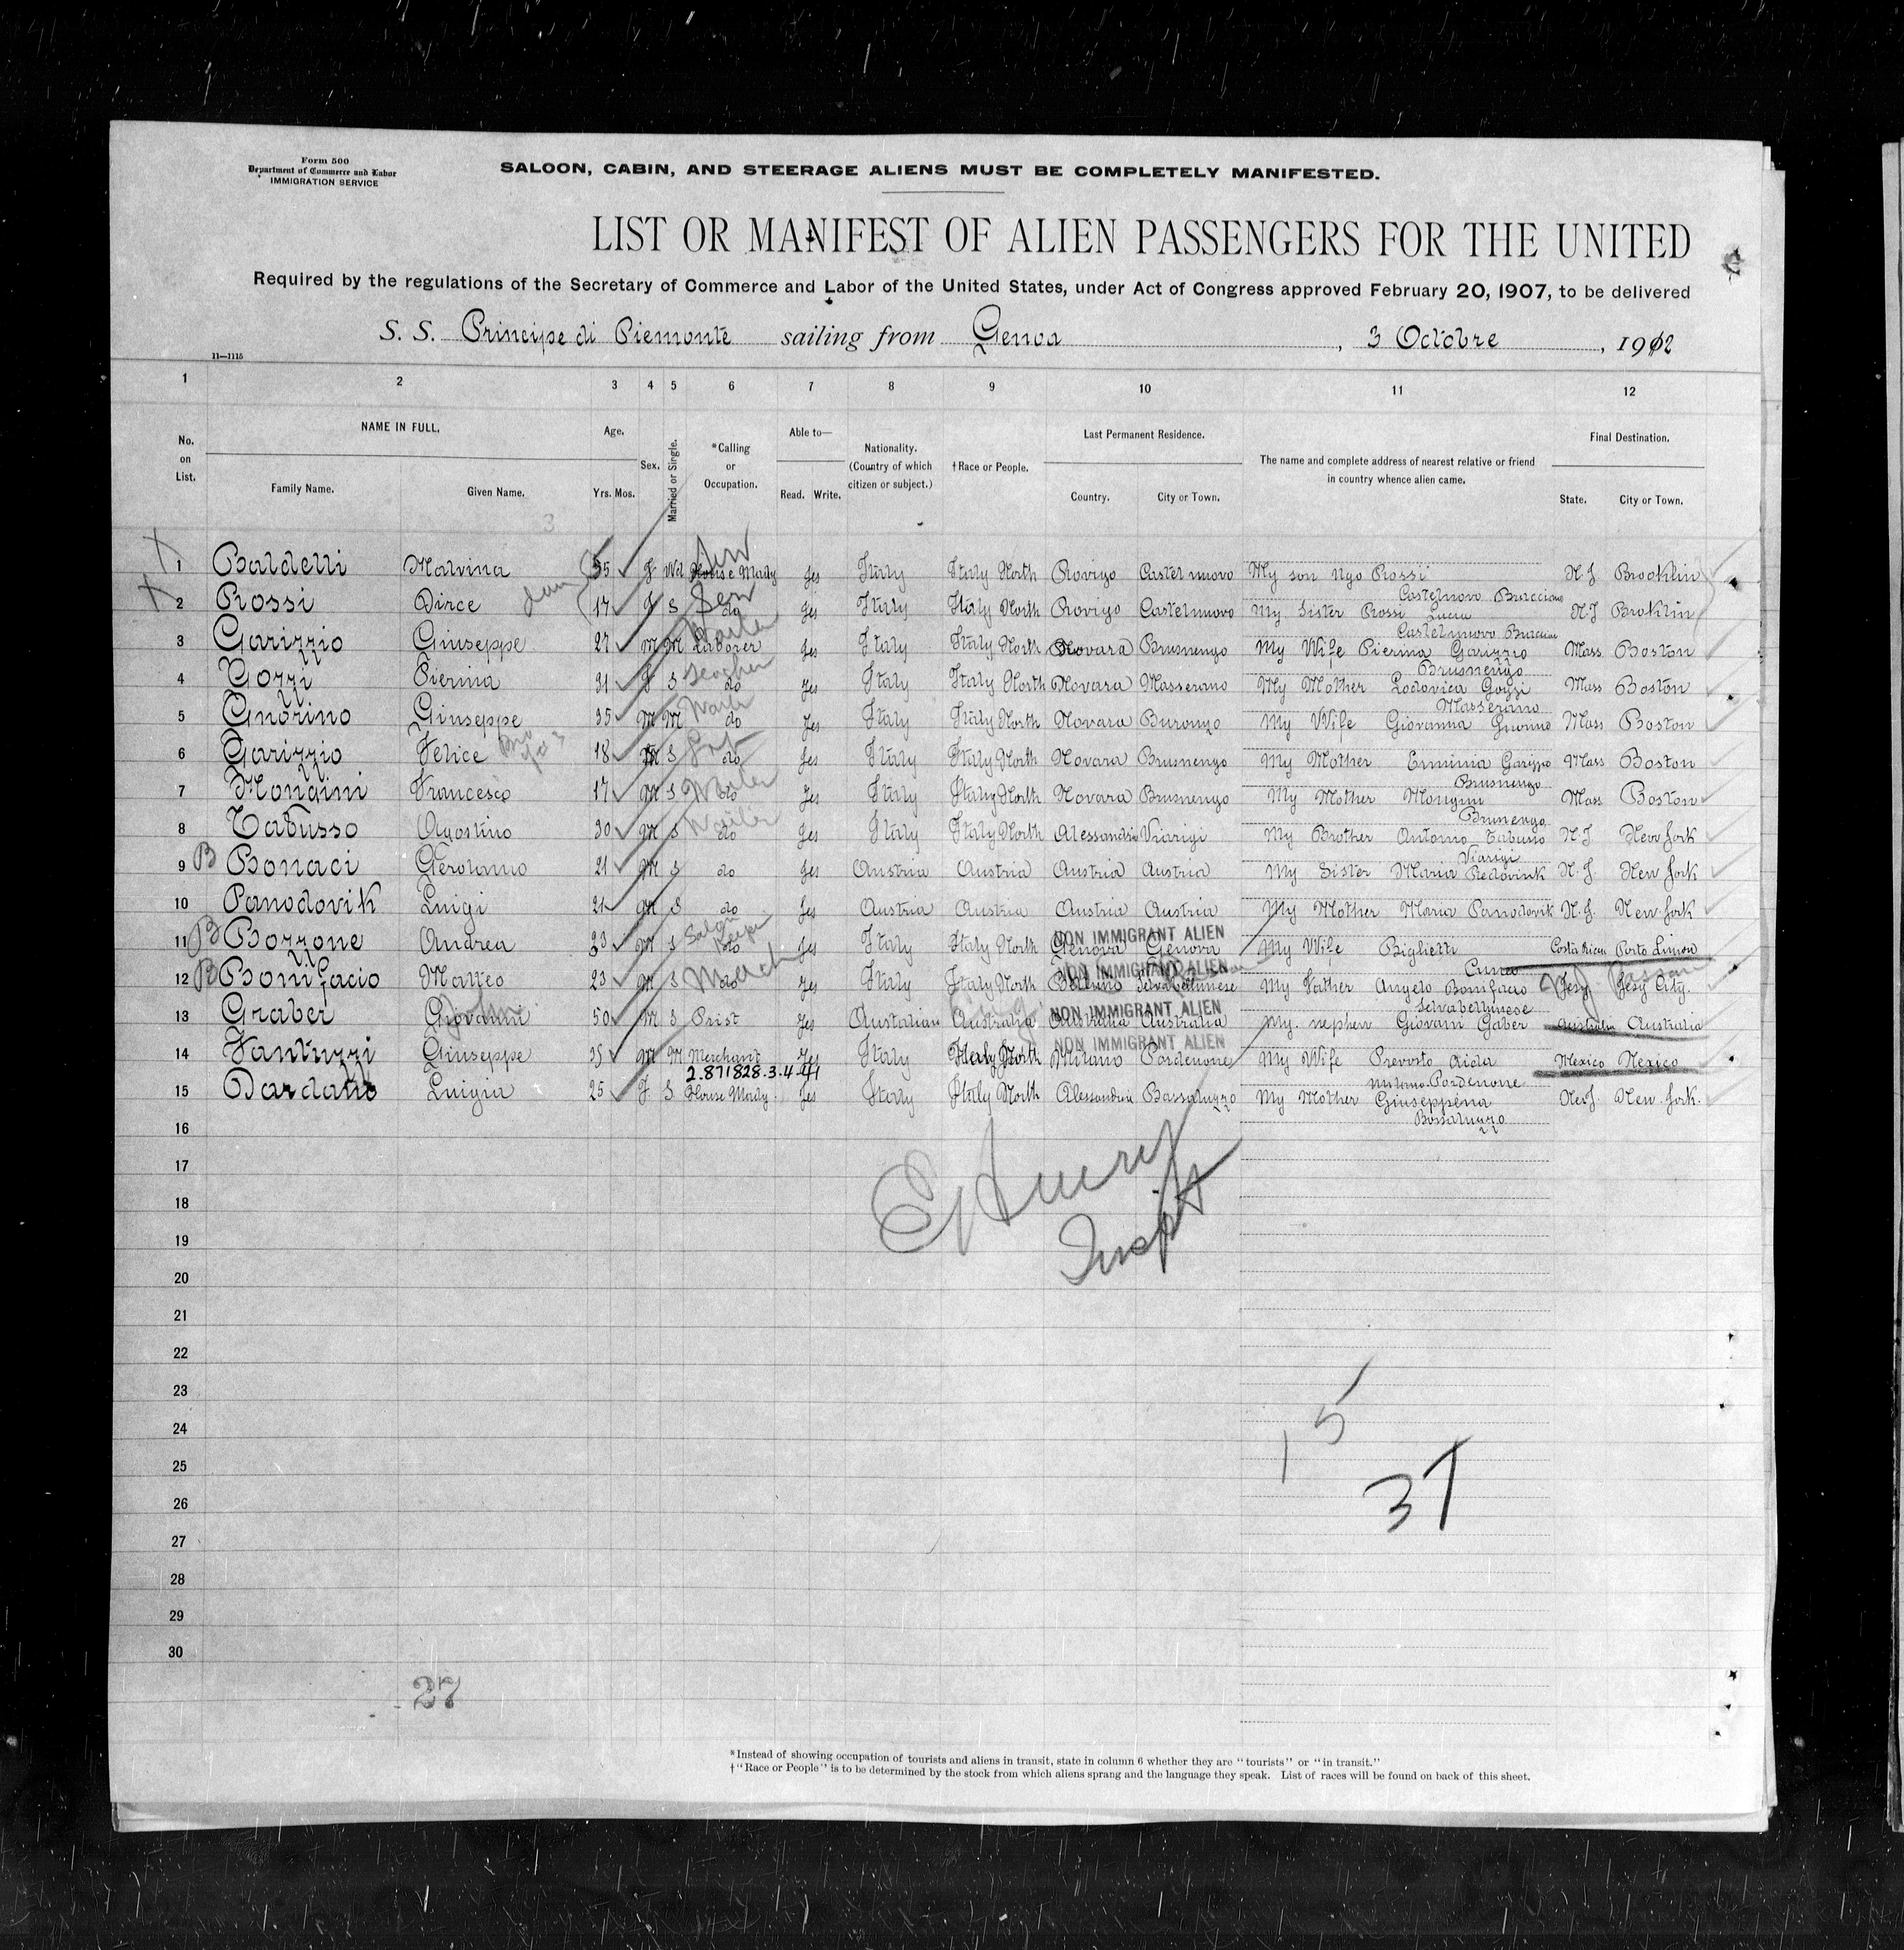 Form 500
Department of Commerce and Labor
IMMIGRATION SERVICE
SALOON, CABIN, AND STEERAGE ALIENS MUST BE COMPLETELY MANIFESTED.
LIST OR MANIFEST OF ALIEN PASSENGERS FOR THE UNITED
Required by the regulations of the Secretary of Commerce and Labor of the United States, under Act of Congress approved February 20, 1907, to be delivered
S. S. Principe di Piemonte sailing from Genoa, 3 Octobre, 1912
11—1115
1 2 3 4 5 6 7 8 9 10 11 12
No. on List. NAME IN FULL. Family Name. Given Name. Age. Yrs. Mos. Sex. Married or Single. *Calling or Occupation. Able to— Read. Write. Nationality. (Country of which citizen or subject.) †Race or People. Last Permanent Residence. Country. City or Town. The name and complete address of nearest relative or friend in country whence alien came. Final Destination. State. City or Town.
1 Baldelli Malvina 55 f Wd House Mady Yes Italy Italy North Rovigo Castelnuovo My son Ugo Rossi N.J Brooklin
Castelnovo
2 Rossi Dirce 17 f S do Yes Italy Italy North Rovigo Castelnuovo My Sister Rossi Lucia N.J Broklin
Castelnuovo
3 Garizzio Giuseppe 27 M M Laborer Yes Italy Italy North Novara Brusnengo My Wife Pierina Garizzio Mass. Boston
Brusnengo
4 Gozzi Pierina 31 f S do Yes Italy Italy North Novara Masserano My Mother Lodovica Gozzi Mass Boston
Masserano
5 Gnorino Giuseppe 35 M M do Yes Italy Italy North Novara Buronzo My Wife Giovanna Gnorino Mass Boston
6 Garizzio Felice 18 M S do Yes Italy Italy North Novara Brusnengo My Mother Erminia Garizzio Mass Boston
Brusnengo
7 Mongini Francesco 17 M S do Yes Italy Italy North Novara Brusnengo My Mother Mongini Mass Boston
Brunengo
8 Tabusso Agostino 30 M S do Yes Italy Italy North Alessandria Viarigi My Brother Antonio Tabusso N.J New York
Viarigi
9 B Bonaci Gerolamo 21 M S do Yes Austria Austria Austria Austria My Sister Maria N.J. New York
10 Panodovik Luigi 21 M S do Yes Austria Austria Austria Austria My Mother Maria Panodovik N.J. New York
NON IMMIGRANT ALIEN
11 B Bozzone Andrea 33 M S do Yes Italy Italy North Genova Genova My Wife Biglietti Costa Rican Porto Limon
Cuneo
NON IMMIGRANT ALIEN
12 B Bonifacio Matteo 23 M S do Yes Italy Italy North Belluno Selvabellunese My Father Angelo Bonifacio Jesy Jesy City.
Selvabellunese
NON IMMIGRANT ALIEN
13 Graber Giovanni 50 M S Prist Yes Australian Australia Australia Australia My. nephew Giovani Gaber Australia Australia
NON IMMIGRANT ALIEN
14 Fantuzzi Giuseppe 35 M M Merchant Yes Italy Italy North Milano Pordenone My Wife Prevosto Aida Mexico Mexico
Milano Pordenone
2.871828.3.4-41
15 Dardano Luigia 25 f. S House Mady. Yes Italy Italy North Alessandria Bassaluzzo My Mother Giuseppina N.J. New York.
Bossaluzzo
16
17
Inspt
18
19
20
21
22
23
24
15
25
37
26
27
28
29
30
27
*Instead of showing occupation of tourists and aliens in transit, state in column 6 whether they are "tourists" or "in transit."
†"Race or People" is to be determined by the stock from which aliens sprang and the language they speak. List of races will be found on back of this sheet.